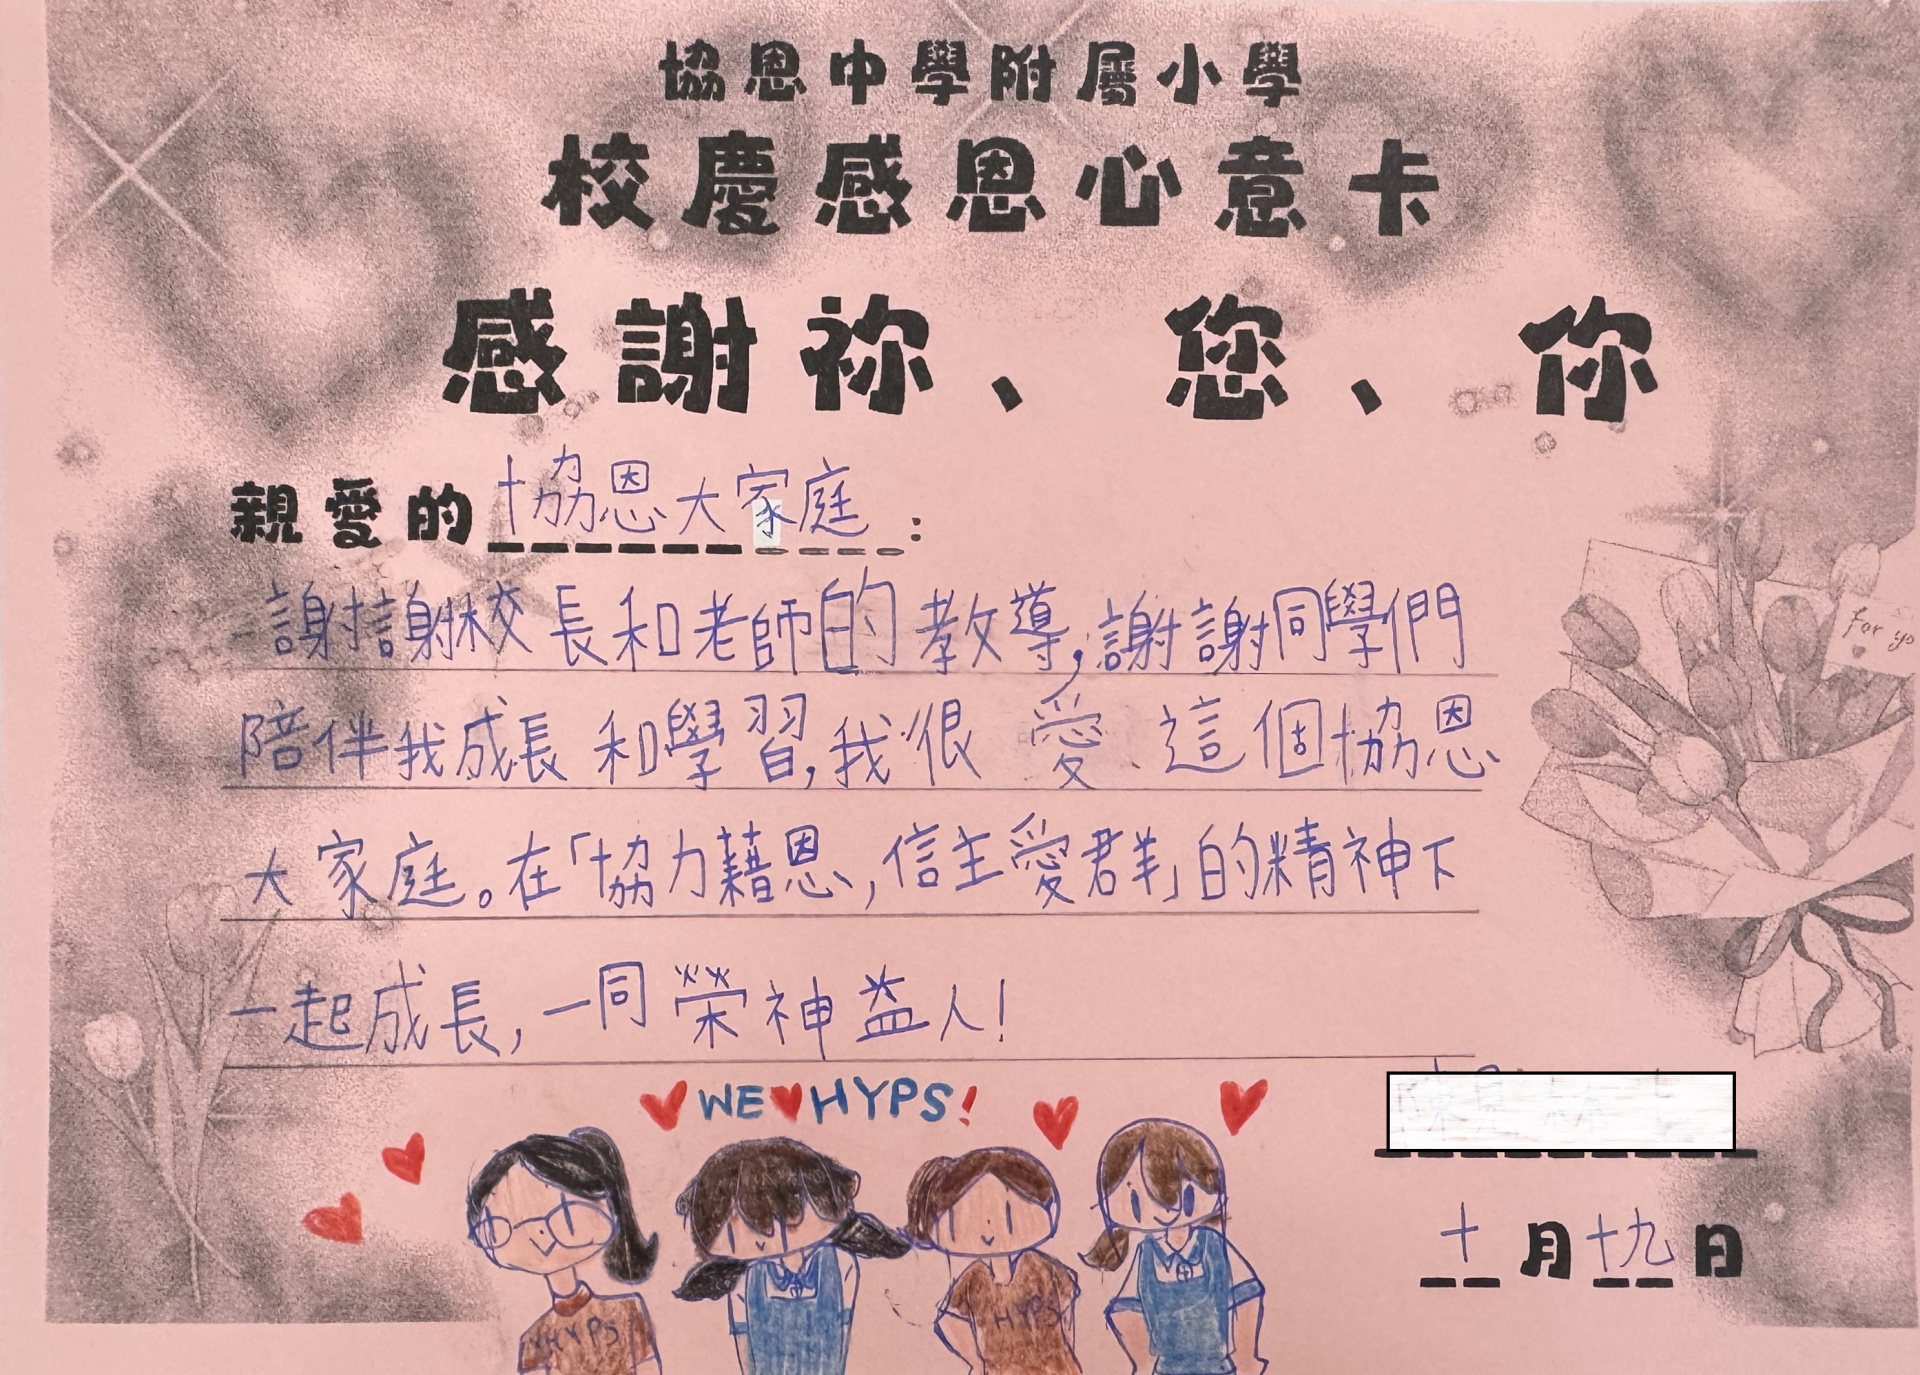 協恩中學附屬小學
校慶感恩心意卡
感謝祢、您、你
親愛的協恩大家庭:
謝謝校長和老師的教導,謝謝同學們
陪伴我成長和學習,我很愛這個協恩
大家庭。在「協力藉恩,信主愛群」的精神下
一起成長,一同榮神益人!
For yo
WE ♥ HYPS!
十月十九日
HYPS
HYPS